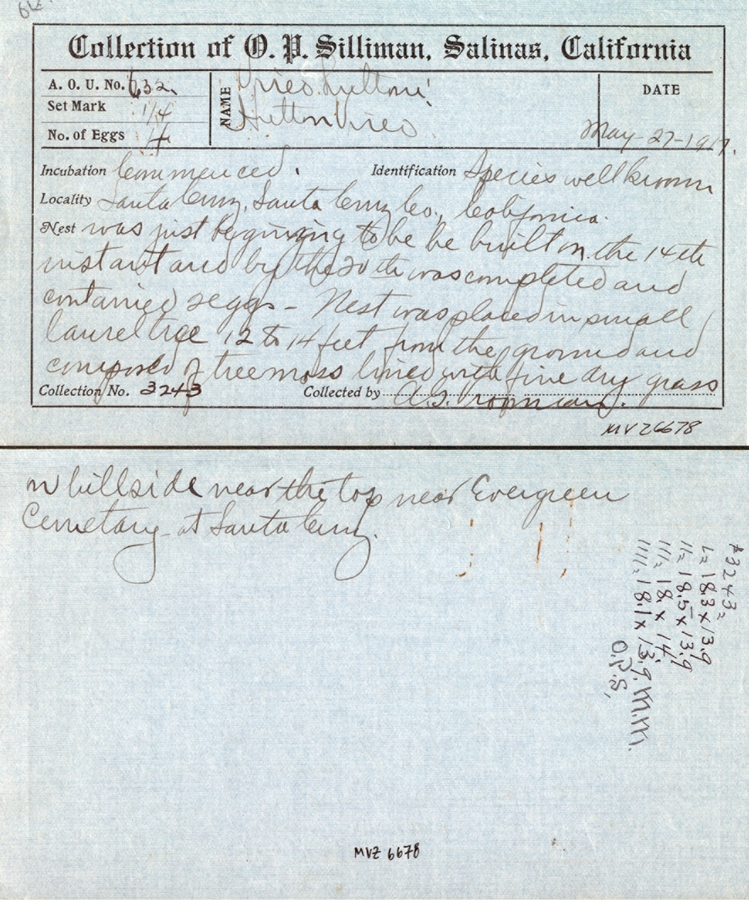 Collection of O. P. Silliman, Salinas, California
A. O. U. No. 632.
Set Mark 1/4
No. of Eggs 4
NAME
Vireo huttoni
Hutton Vireo
DATE
May-27-1917.
Incubation Commenced. Identification Species well known
Locality Santa Cruz, Santa Cruz Co., California.
Nest was just beginning to be be built on the 14th
instant and by the 20th was completed and
contained 2 eggs - Nest was placed in small
laurel tree 12 to 14 feet from the ground and
composed of tree moss lined with fine dry grass
Collection No. 3243 Collected by A.S.
MVZ 6678
n hillside near the top near Evergreen
Cemetary at Santa Cruz.
#3243=
1= 18.3 x 13.9
11= 18.5 x 13.9
111= 18. x 14.
1111= 18.1 x 13.9. M.M.
O.P.S.
MVZ 6678